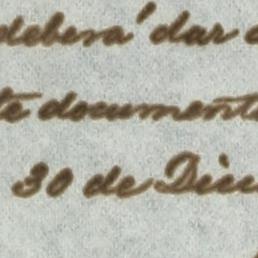 deberá dar
te document
30 de Dici